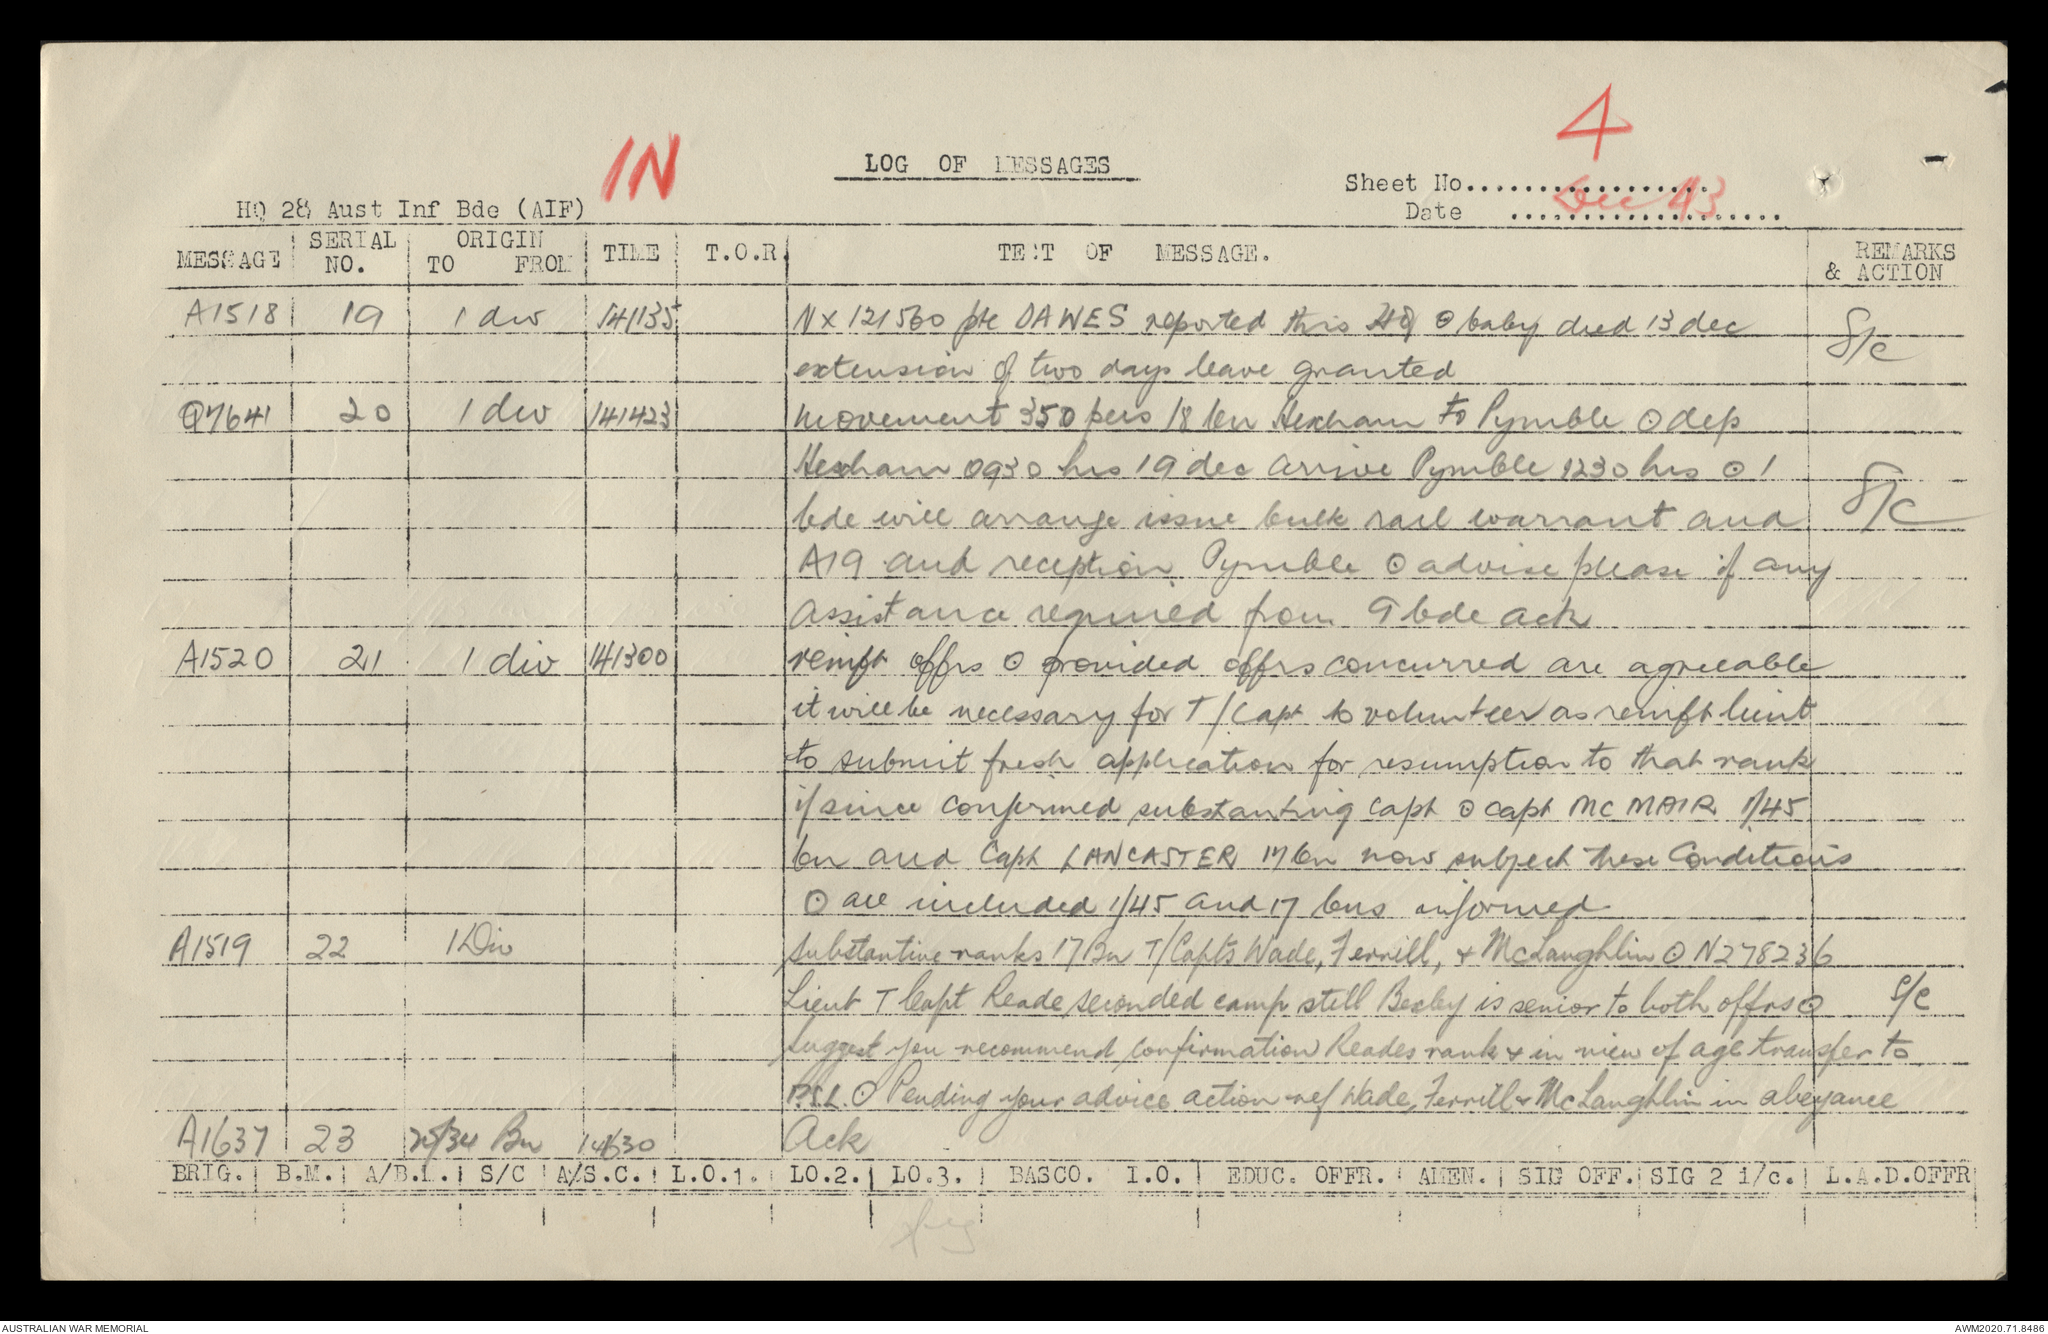 4
IN
LOG OF MESSAGES
Sheet No...................
Date Dec 43
HQ 28 Aust Inf Bde (AIF)
MESSAGE SERIAL NO. ORIGIN TO FROM TIME T.O.R. TEXT OF MESSAGE. REMARKS & ACTION
A1518 19 1 div 141135 NX121560 pte DAWES reported this HQ ⊙ baby died 13 dec S/C
extension of two days leave granted
Q7641 20 1 div 141423 movement 350 pers 18 bn Hexham to Pymble ⊙ dep
Hexham 0930 hrs 19 dec arrive Pymble 1230 hrs ⊙ 1
bde will arrange issue bulk rail warrant and S/C
A19 and reception Pymble ⊙ advise please if any
assistance required from 9 bde ack
A1520 21 1 div 141300 reinft offrs ⊙ provided offrs concurred are agreeable
it will be necessary for T/Capt to volunteer as reinft lieut
to submit fresh application for resumption to that rank
if since confirmed substanting capt ⊙ capt MCMAIR 1/45
bn and Capt LANCASTER 17 bn now subject these conditions
⊙ are included 1/45 and 17 bns informed
A1519 22 1 Div Substantive ranks 17 Bn T/Capts Wade, Ferrill, & McLaughlin ⊙ N278236
Lieut T Capt Reade seconded camp still Bexley is senior to both offrs ⊙ S/C
Suggest you recommend confirmation Reades rank & in view of age transfer to
R.S.L. ⊙ Pending your advice action ref Wade, Ferrill & McLaughlin in abeyance
A1637 23 20/34 Bn 141630 Ack
BRIG. B.M. A/B.M. S/C A/S.C. L.O.1. LO.2. LO.3. BASCO. I.O. EDUC. OFFR. AMEN. SIG OFF. SIG 2 i/c. L.A.D.OFFR
AUSTRALIAN WAR MEMORIAL
AWM2020.71.8486